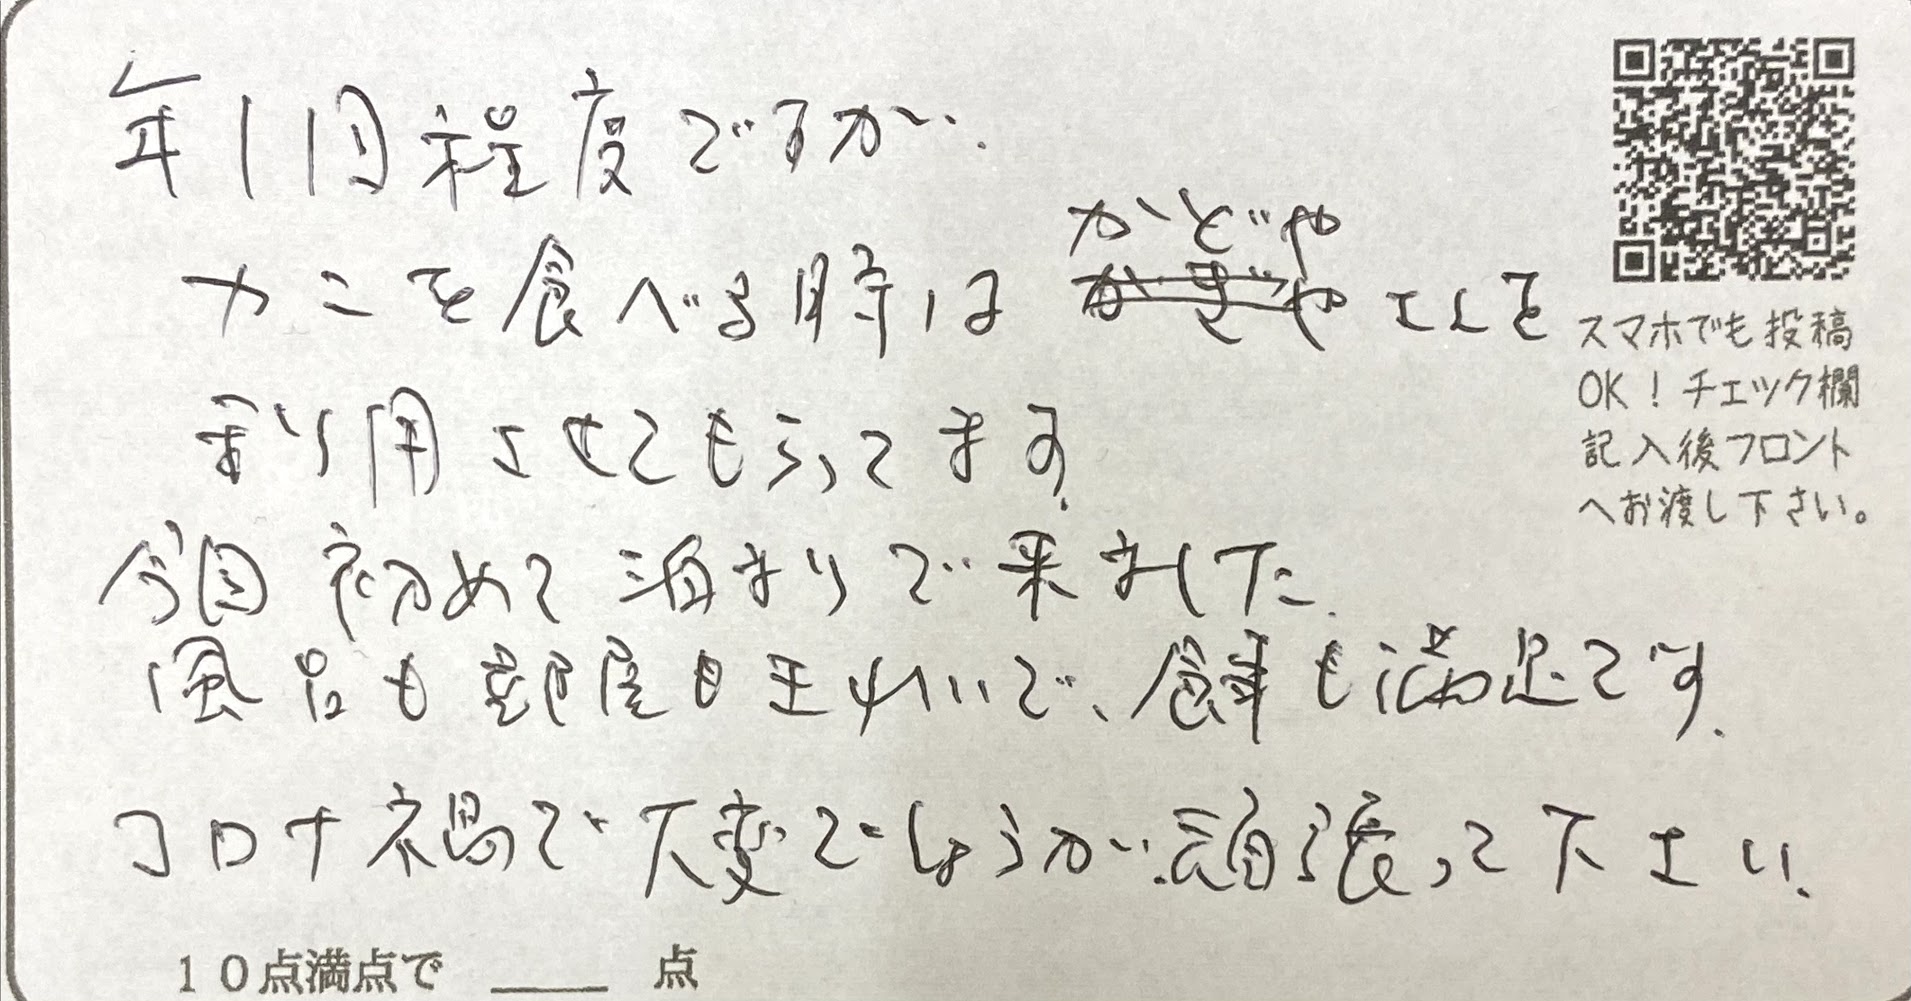 年1回程度ですが、
カニを食べる時は かどや
かぎやさんを
利用させてもらってます。
今回初めて泊まりで来ました。
風呂も部屋もきれいで、食事も満足です。
コロナ禍で大変でしょうが、頑張って下さい。
スマホでも投稿
OK！チェック欄
記入後フロント
へお渡し下さい。
10点満点で ____ 点